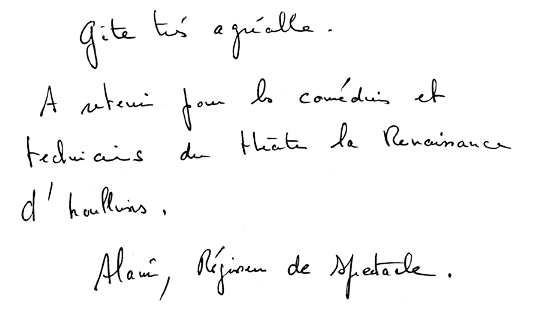 Gite très agréable.
A retenir pour les comédiens et
techniciens du théâtre la Renaissance
d'houllins.
Alain, Régisseur de spectacle.